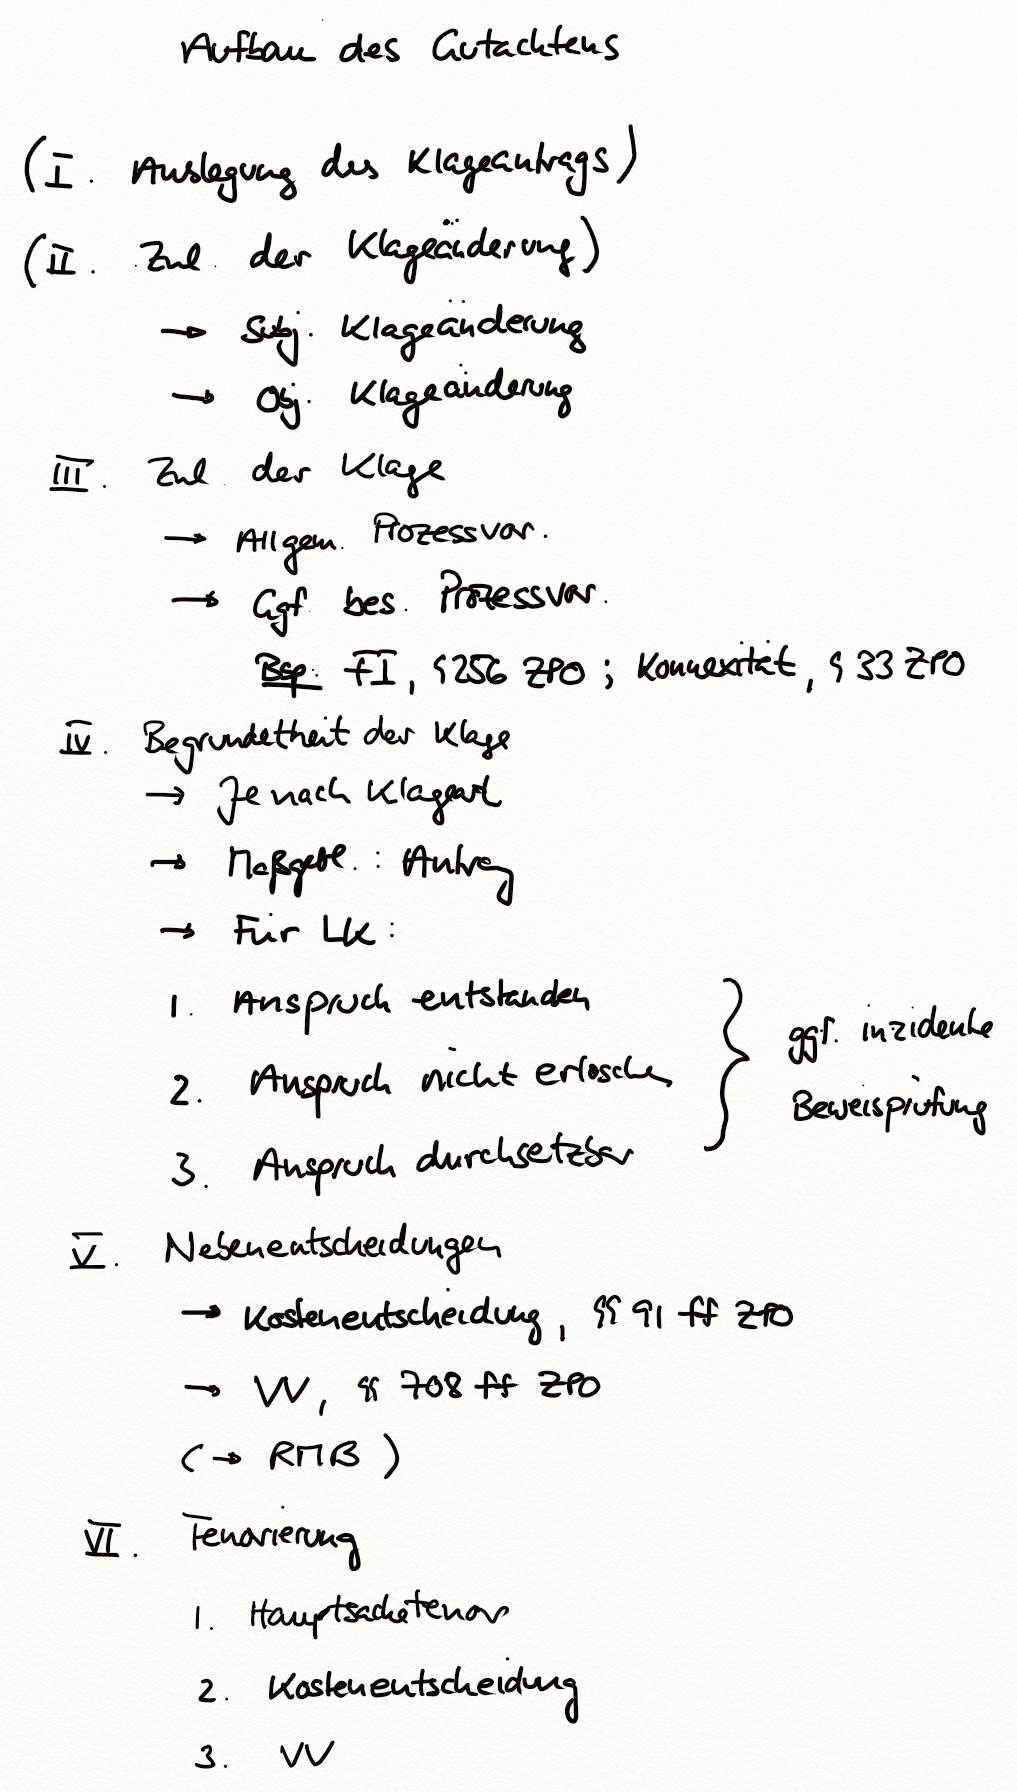 Aufbau des Gutachtens
(I. Auslegung des Klageantrags)
(II. Zul. der Klageänderung)
→ Subj. Klageänderung
→ Obj. Klageänderung
III. Zul. der Klage
→ Allgem. Prozessvor.
→ Ggf. bes. Prozessvor.
Bsp. FI, § 256 ZPO ; Konnexität, § 33 ZPO
IV. Begründetheit der Klage
→ Je nach Klageart
→ Maßgebl. : Antrag
→ Für LK :
1. Anspruch entstanden
2. Anspruch nicht erloschen
3. Anspruch durchsetzbar
} ggf. inzidente
Beweisprüfung
V. Nebenentscheidungen
→ Kostenentscheidung, §§ 91 ff ZPO
→ VV, §§ 708 ff ZPO
(→ RMB)
VI. Tenorierung
1. Hauptsachetenor
2. Kostenentscheidung
3. VV